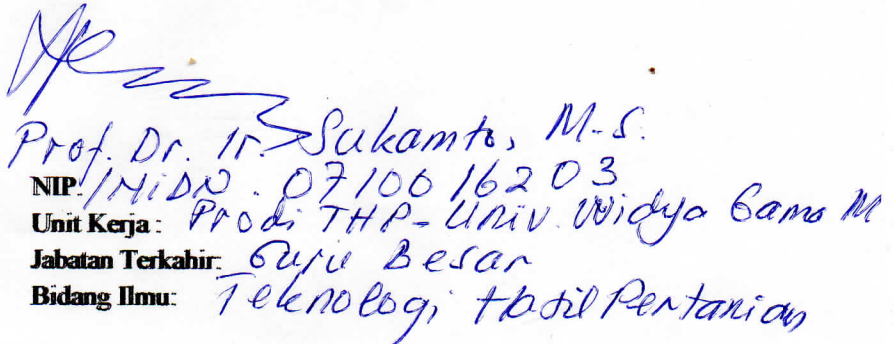 Prof. Dr. Ir. Sukamto, M.S.
NIP:/NiDN. 0710016203
Unit Kerja: Prodi THP-Univ. Widya Gama M
Jabatan Terkahir: Guru Besar
Bidang Ilmu: Teknologi Hasil Pertanian